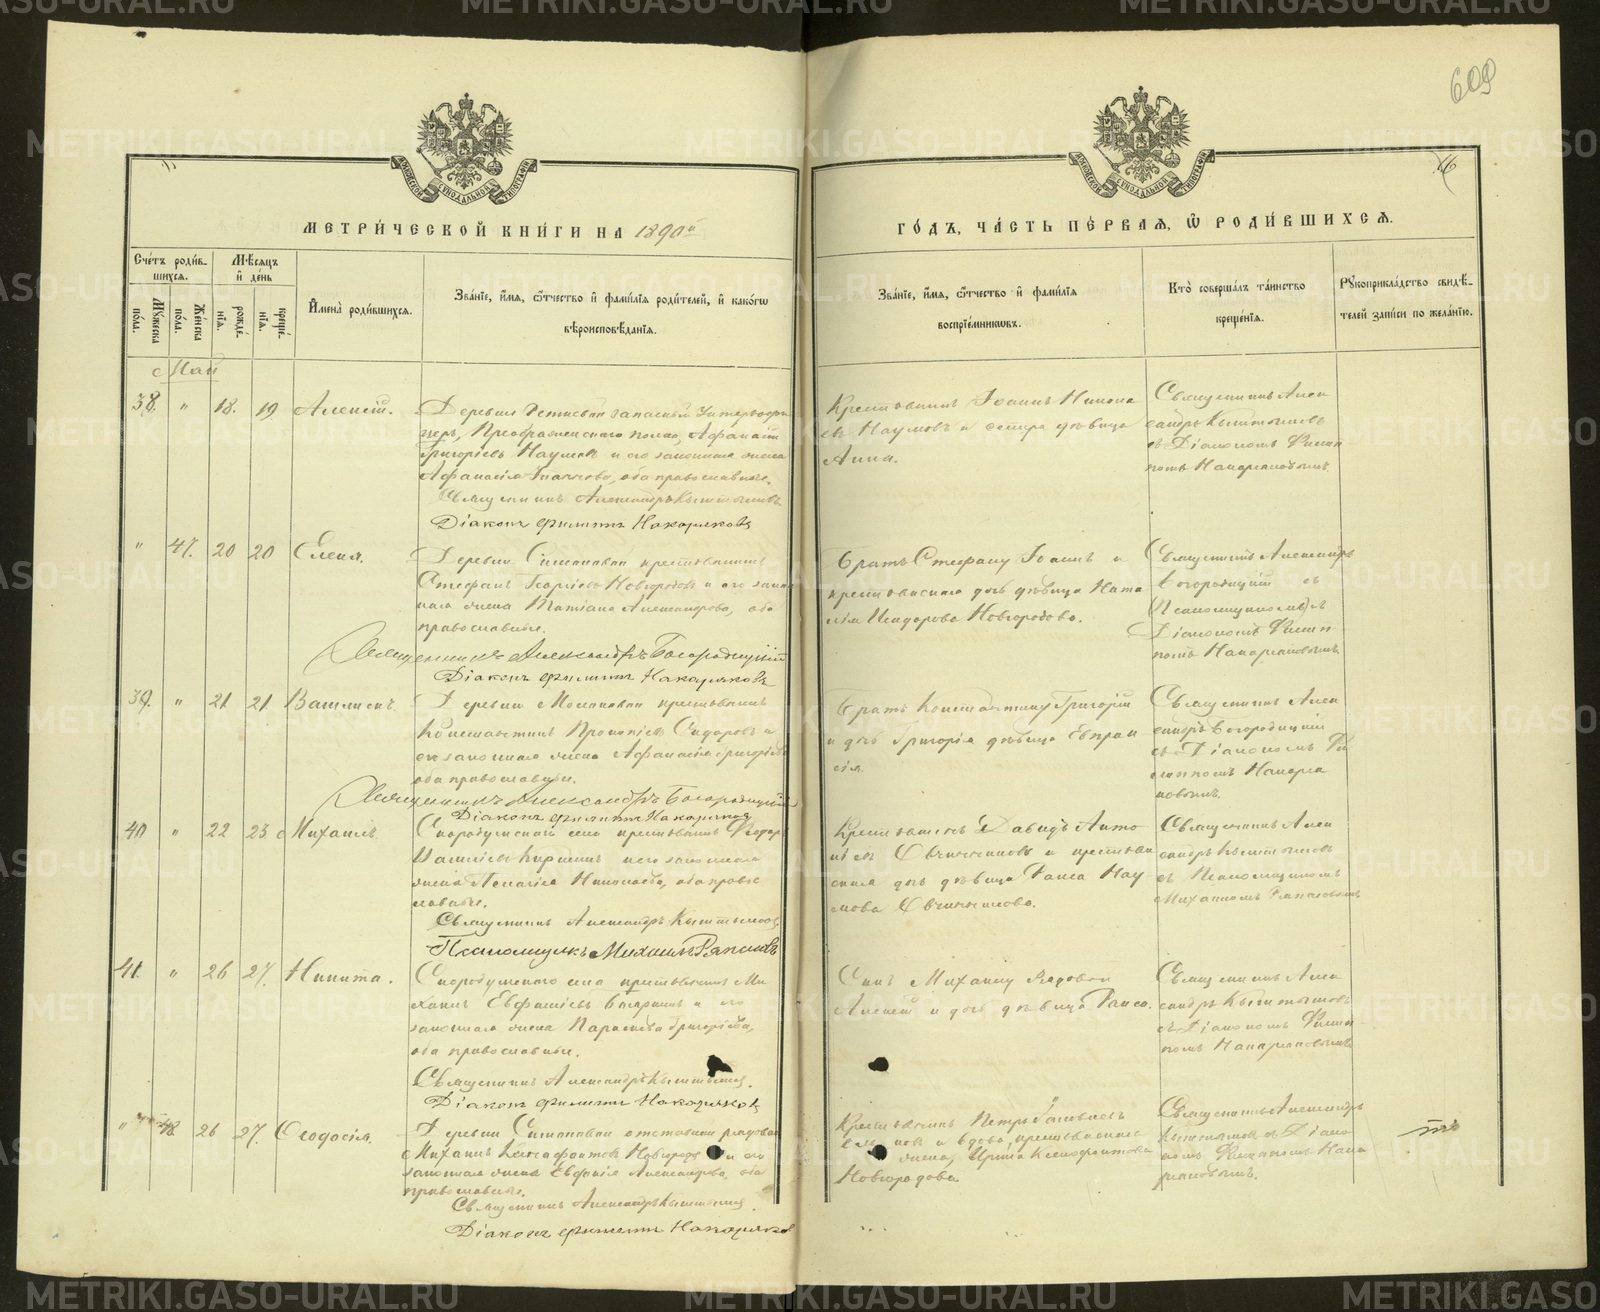 609
МЕТРИ́ЧЕСКОЙ КНИ́ГИ НА 1890й
ГО́ДЪ, ЧА́СТЬ ПЕ́РВАѦ, Ѡ҆ РОДИ́ВШИХСѦ.
Сче́тъ роди́вшихсѧ.
Мѣ́сѧцъ и҆ де́нь
Мꙋ́жеска по́ла.
Же́нска по́ла.
рожде́нїѧ.
креще́нїѧ.
И҆мена̀ роди́вшихсѧ.
Зва́нїе, и҆́мѧ, ѻ҆́тчество и҆ фами́лїѧ роди́телей, и҆ како́гѡ вѣроисповѣ́данїѧ.
Зва́нїе, и҆́мѧ, ѻ҆́тчество и҆ фами́лїѧ воспрїе́мникѡвъ.
Кто̀ соверша́лъ та́инство креще́нїѧ.
Рꙋкоприкла́дство свидѣ́телей за́писи по жела́нїю.
Май
38. " 18. 19 Алексій.
Деревни запасный унтеръ-офи
церъ, Преображенскаго полка, Афанасій
Григоріевъ Наумовъ и его законная жена
Афанасія оба православные.
Священникъ Александръ Кыштымовъ
Діаконъ Филиппъ Накаряковъ
Крестьянинъ Іоаннъ
Наумовъ и сестра дѣвица
Анна.
Священникъ Алек
сандръ Кыштымовъ
съ Діакономъ Филип
помъ Накаряковымъ
" 47. 20 20 Елена.
Деревни Симоновой крестьянинъ
Стефанъ Новгородовъ и его закон
ная жена Татіана Александрова, оба
православные.
Священникъ Александръ Богородицкій
Діаконъ Филиппъ Накаряковъ
Братъ Стефану Іоаннъ и
крестьянская дочь дѣвица Ната
лія Исидорова Новгородова.
Священникъ Александръ
Богородицкій съ
Діакономъ Филип
помъ Накаряковымъ
39. " 21 21 Вассиліскъ.
Деревни крестьянинъ
Константинъ Прокопіевъ Сидоровъ и
его законная жена Афанасія Григорьева
оба православные.
Священникъ Александръ Богородицкій
Діаконъ Филиппъ Накаряковъ
Братъ Константину Григорій
и дочь Григорія дѣвица Евпрак
сія.
Священникъ Алек
сандръ Богородицкій
съ Діакономъ Фи
липпомъ Накаря
ковымъ.
40 " 22 23 Михаилъ
Скородумскаго села крестьянинъ Ѳедоръ
и его законная
жена Пелагія Николаева, оба право
славные.
Священникъ Александръ Кыштымовъ
Псаломщикъ Михаилъ Ряпасовъ
Крестьянинъ Давидъ Анто
ніевъ Овчинниковъ и крестьян
ская дочь дѣвица Раиса Нау
мова Овчинникова.
Священникъ Алек
сандръ Кыштымовъ
съ Псаломщикомъ
Михаиломъ Ряпасовымъ
41. " 26 27. Никита.
Скородумскаго села крестьянинъ Ми
хаилъ Евфиміевъ и его
законная жена Параскева Григорьева,
оба православные.
Священникъ Александръ Кыштымовъ.
Діаконъ Филиппъ Накаряковъ
Сынъ Михаилу рядовой
Алексій и дочь дѣвица Раиса.
Священникъ Алек
сандръ Кыштымовъ
съ Діакономъ Филип
помъ Накаряковымъ
" 48. 26 27. Ѳеодосія.
Деревни Симоновой отставной рядовой
Михаилъ Ксенофонтовъ и его
законная жена Евфимія Александрова, оба
православные.
Священникъ Александръ Кыштымовъ.
Діаконъ Филиппъ Накаряковъ
Крестьянинъ Петръ
и вдова, крестьянская
жена, Ирина Ксенофонтова
Новгородова
Священникъ Александръ
Кыштымовъ съ Діако
номъ Филиппомъ Нака
ряковымъ.
METRIKI.GASO-URAL.RU